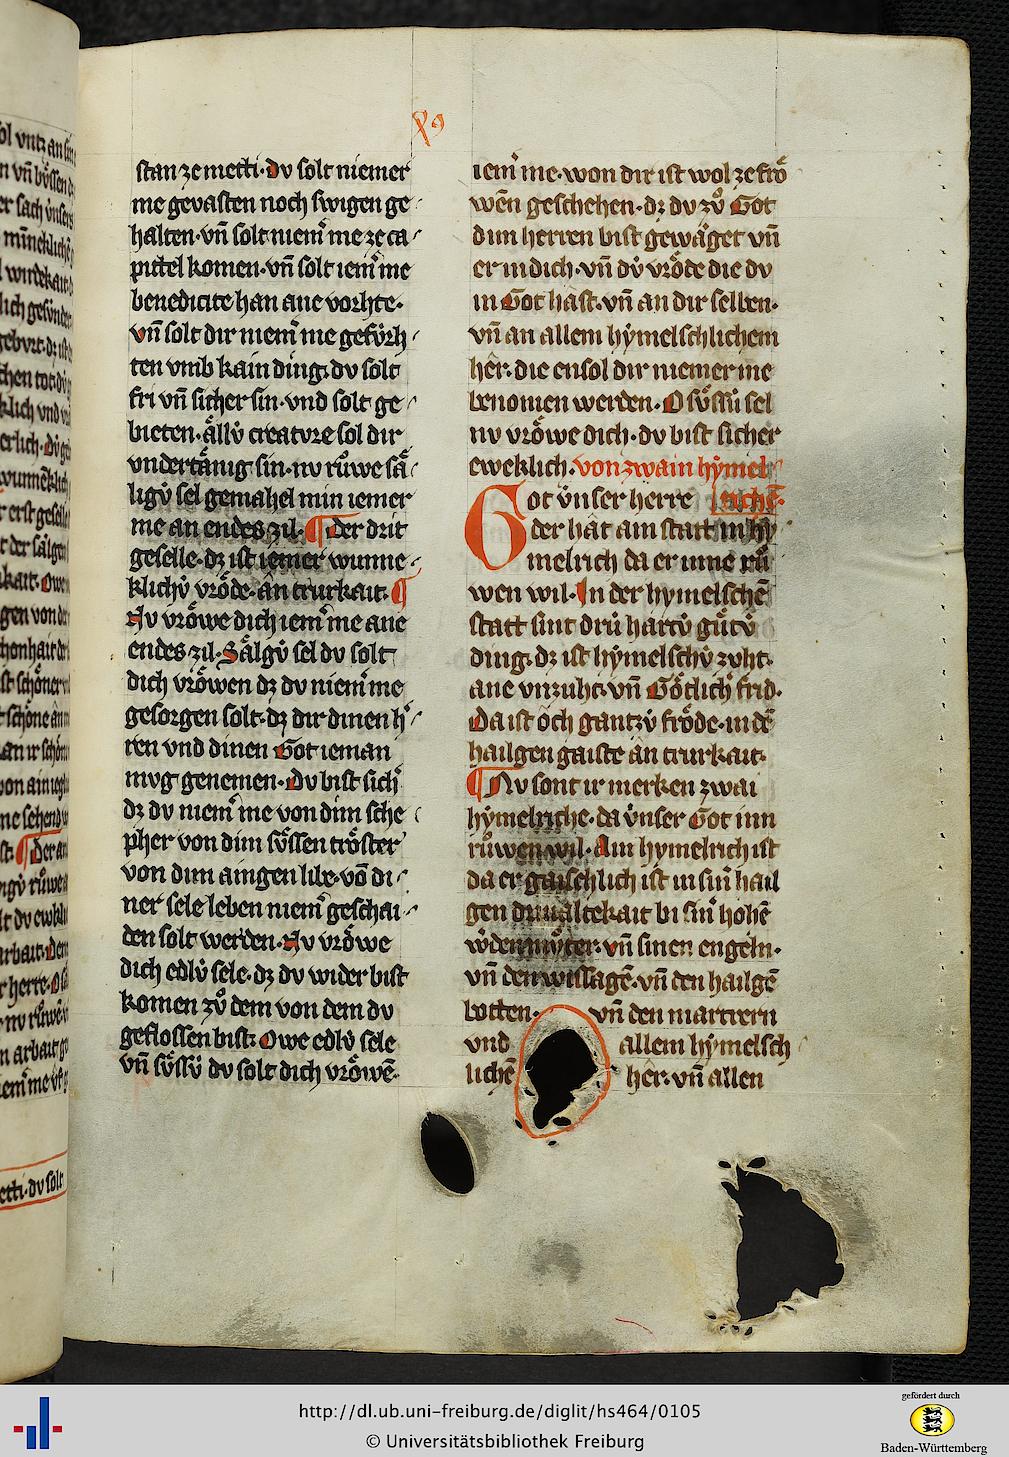 x9
stan ze metti · Dv solt niemer
me gevasten noch swigen ge
halten · vn̄ solt niem̄ me ze ca
pittel komen · vn̄ solt iem̄ me
benedicite han ane vorhte ·
vn̄ solt dir niem̄ me gefv́rh
ten vmb kain ding · dv solt
fri vn̄ sicher sin · vnd solt ge
bieten · ällv́ creatvre sol dir
vndertänig sin · nv růwe sä
ligv́ sel gemahel min iemer
me an endes zil · ¶ der drit
geselle · dz ist iemer wunne
klichv́ vröde · ân trurkait · ¶
Nv vröwe dich iem̄ me ane
endes zil · Sälgv́ sel dv solt
dich vröwen dz dv niem̄ me
gesorgen solt · dz dir dinen h̄
ren vnd dinen Got ieman
mvg genemen · Dv bist sich̄
dz dv niem̄ me von dim sche
pher von dim sv̈ssen tröster
von dim aingen libe · vō di
ner sele leben niem̄ geschai
den solt werden · Nv vröwe
dich edlv́ sele · dz dv wider bist
komen zů dem von dem dv
geflossen bist · Owe edlv́ sele
vn̄ sv̈ssv́ dv solt dich vröwē ·
iem̄ me · won dir ist wol ze frö
wēn geschehen · dz dv zů Got
dim herren bist gewäget vn̄
er in dich · vn̄ dv́ vröde die dv
in Got hâst · vn̄ an dir selben ·
vn̄ an allem hymelschlichem
her · die ensol dir niemer me
benomen werden · O sv̈ssv́ sel
nv vröwe dich · dv bist sicher
eweklich · von zwain hymel
Got v́nser herre richē ·
der hât ain statt in hy
melrich da er inne rů
wen wil · In der hymelschē
statt sint drv́ hartv́ gůtv́
ding · dz ist hymelschv́ zvht ·
ane vnzuht · vn̄ Götlich̄ frid ·
Da ist öch gantzv́ fröde · in dē
hailgen gaiste ân trurkait ·
¶ Nv sont ir merken zwai
hymelriche · da v́nser Got inn
růwen wil · Ain hymelrich ist
da er gaischlich ist in sin̄ hail
gen driualtekait bi sin̄ hohē
wdenmůter · vn̄ sinen engeln ·
vn̄ den wissagē · vn̄ den hailgē
botten · vn̄ den martrern
vnd allem hymelsch
lichē her · vn̄ allen
etti · dv solt
http://dl.ub.uni-freiburg.de/diglit/hs464/0105
© Universitätsbibliothek Freiburg
gefördert durch
Baden-Württemberg